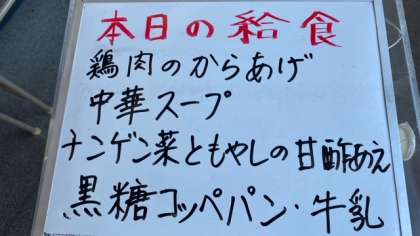 本日の給食
鶏肉のからあげ
中華スープ
ナンゲン菜ともやしの甘酢あえ
黒糖コッペパン・牛乳